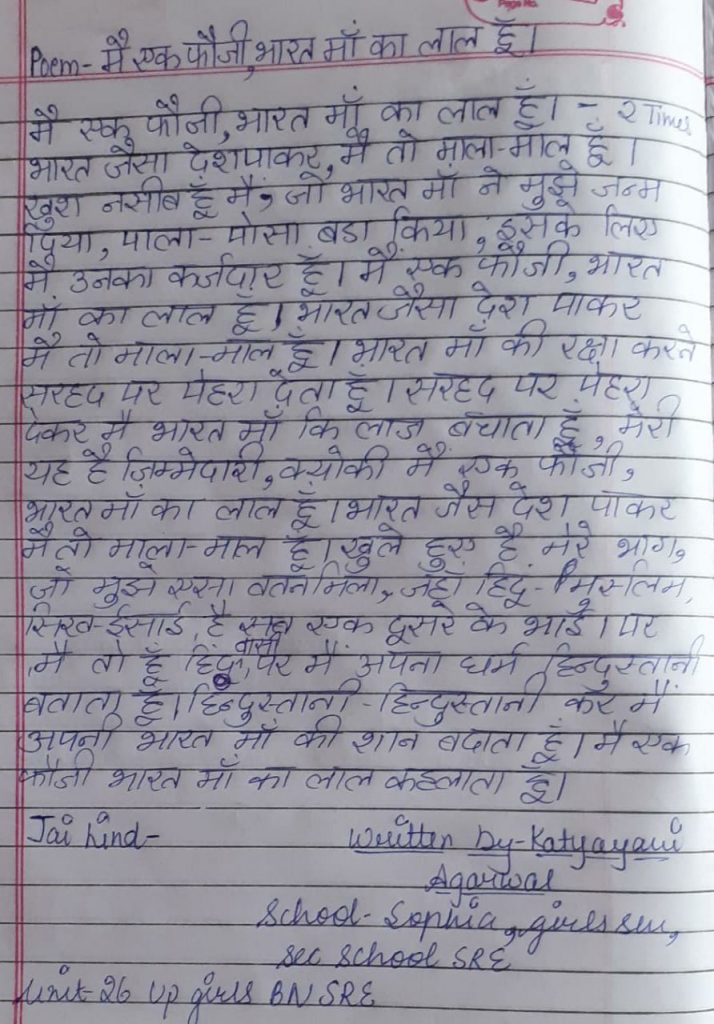 Page No.
Poem- मै एक फौजी, भारत माँ का लाल हूँ।
मै एक फौजी, भारत माँ का लाल हूँ। - 2 Times
भारत जैसा देश पाकर, मै तो माला-माल हूँ।
खुश नसीब हूँ मैं, जो भारत माँ ने मुझे जन्म
दिया, पाला-पोसा बडा किया, इसके लिए
मै उनका कर्जदार हूँ। मैं एक फौजी, भारत
माँ का लाल हूँ। भारत जैसा देश पाकर
मै तो माला-माल हूँ। भारत माँ की रक्षा करते
सरहद पर पेहरा देता हूँ। सरहद पर पेहरा
देकर मै भारत माँ कि लाज बचाता हूँ, मेरी
यह है ज़िम्मेदारी, क्योकी मैं एक फौजी,
भारत माँ का लाल हूँ। भारत जैस देश पाकर
मै तो माला-माल हूँ। खुले हुए है मेरे भाग,
जो मुझे एसा वतन मिला, जहाँ हिंदू-मुस्लिम,
सिख-ईसाई, है सब एक दूसरे के भाई। पर
मै तो हूँ हिंदवासी, पर मैं अपना धर्म हिन्दुस्तानी
बताता हूँ। हिन्दुस्तानी-हिन्दुस्तानी कर मैं
अपनी भारत माँ की शान बढाता हूँ। मै एक
फौजी भारत माँ का लाल कहलाता हूँ।
Jai hind- Written By-Katyayani
Agarwal
School- Sophia, girls sen,
sec school SRE
Unit-26 Up girls BN SRE